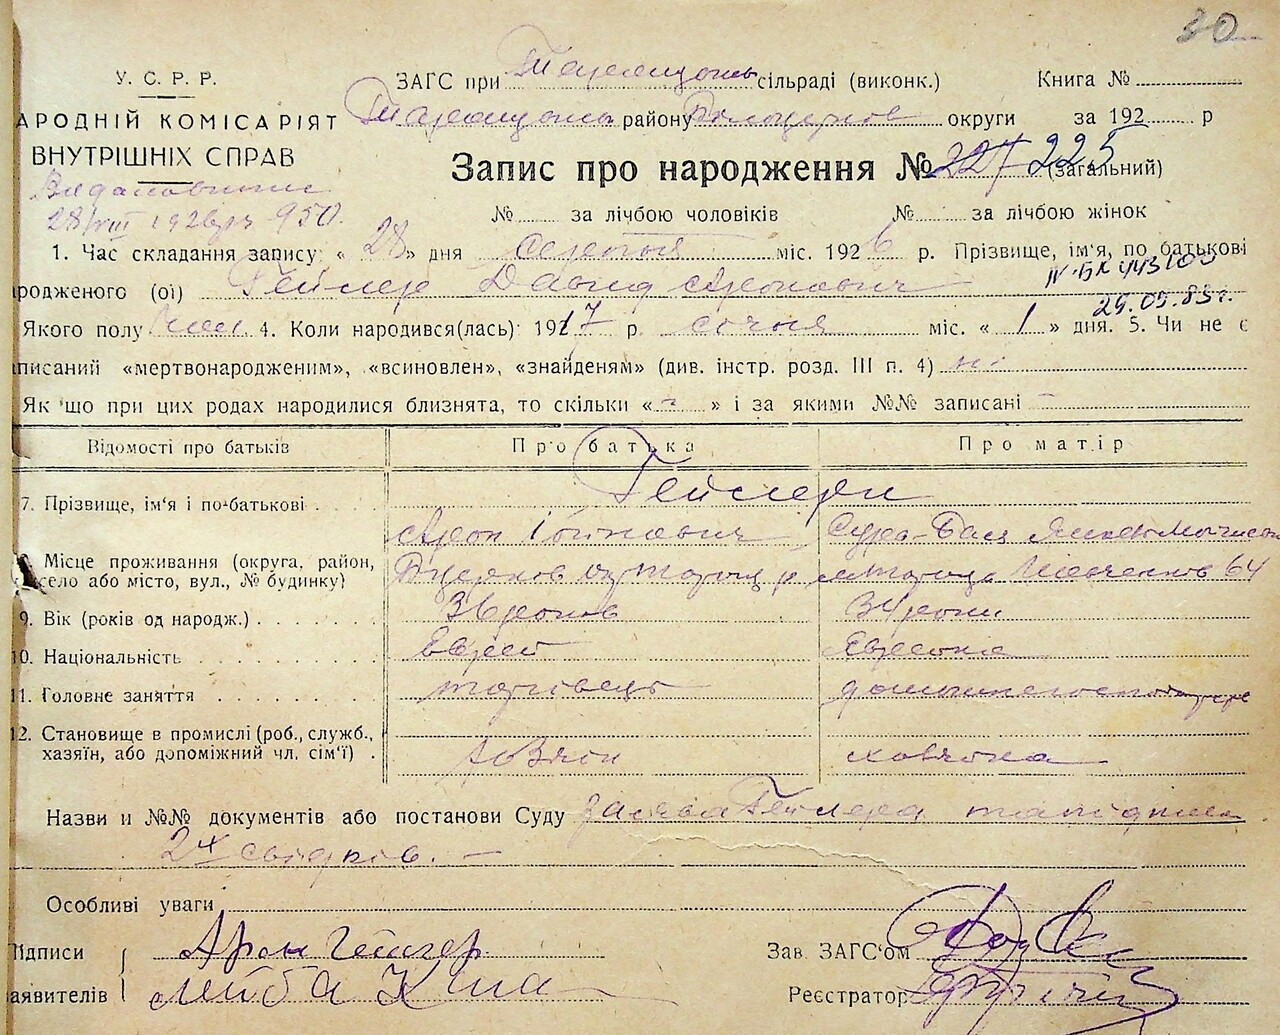 30
У. С. Р. Р.
АРОДНІЙ КОМІСАРІЯТ
ВНУТРІШНІХ СПРАВ
28/VIII 1926 р. 950.
ЗАГС при Таращань сільраді (виконк.) Книга №
Таращань району Білоцерков округи за 192 р
Запис про народження № 327 225 (загальний)
№ за лічбою чоловіків № за лічбою жінок
1. Час складання запису: « 28 » дня серпня міс. 1926 р. Прізвище, ім'я, по батькові
родженого (ої) Гейлер Давид Аронович
29.09.83г.
Якого полу чол 4. Коли народився(лась): 1917 р. січня міс. « 1 » дня. 5. Чи не є
писаний «мертвонародженим», «всиновлен», «знайденям» (див. інстр. розд. III п. 4) ні
Як що при цих родах народилися близнята, то скільки « - » і за якими №№ записані -
Відомості про батьків Про батька Про матір
7. Прізвище, ім'я і по-батькові Гейлери
Арон Сура-Бася
8. Місце проживання (округа, район, село або місто, вул., № будинку) 64
9. Вік (років од народж.) 36 роков 34 роки
10. Національність Еврей Еврейка
11. Головне заняття торговець домашнегосподар
12. Становище в промислі (роб., служб., хазяїн, або допоміжний чл. сім'ї)
Назви и №№ документів або постанови Суду заява Гейлера та підписи
2х свідків. —
Особливі уваги
Підписи Арон Гейлер Зав. ЗАГС'ом
аявителів Лейба Реєстратор